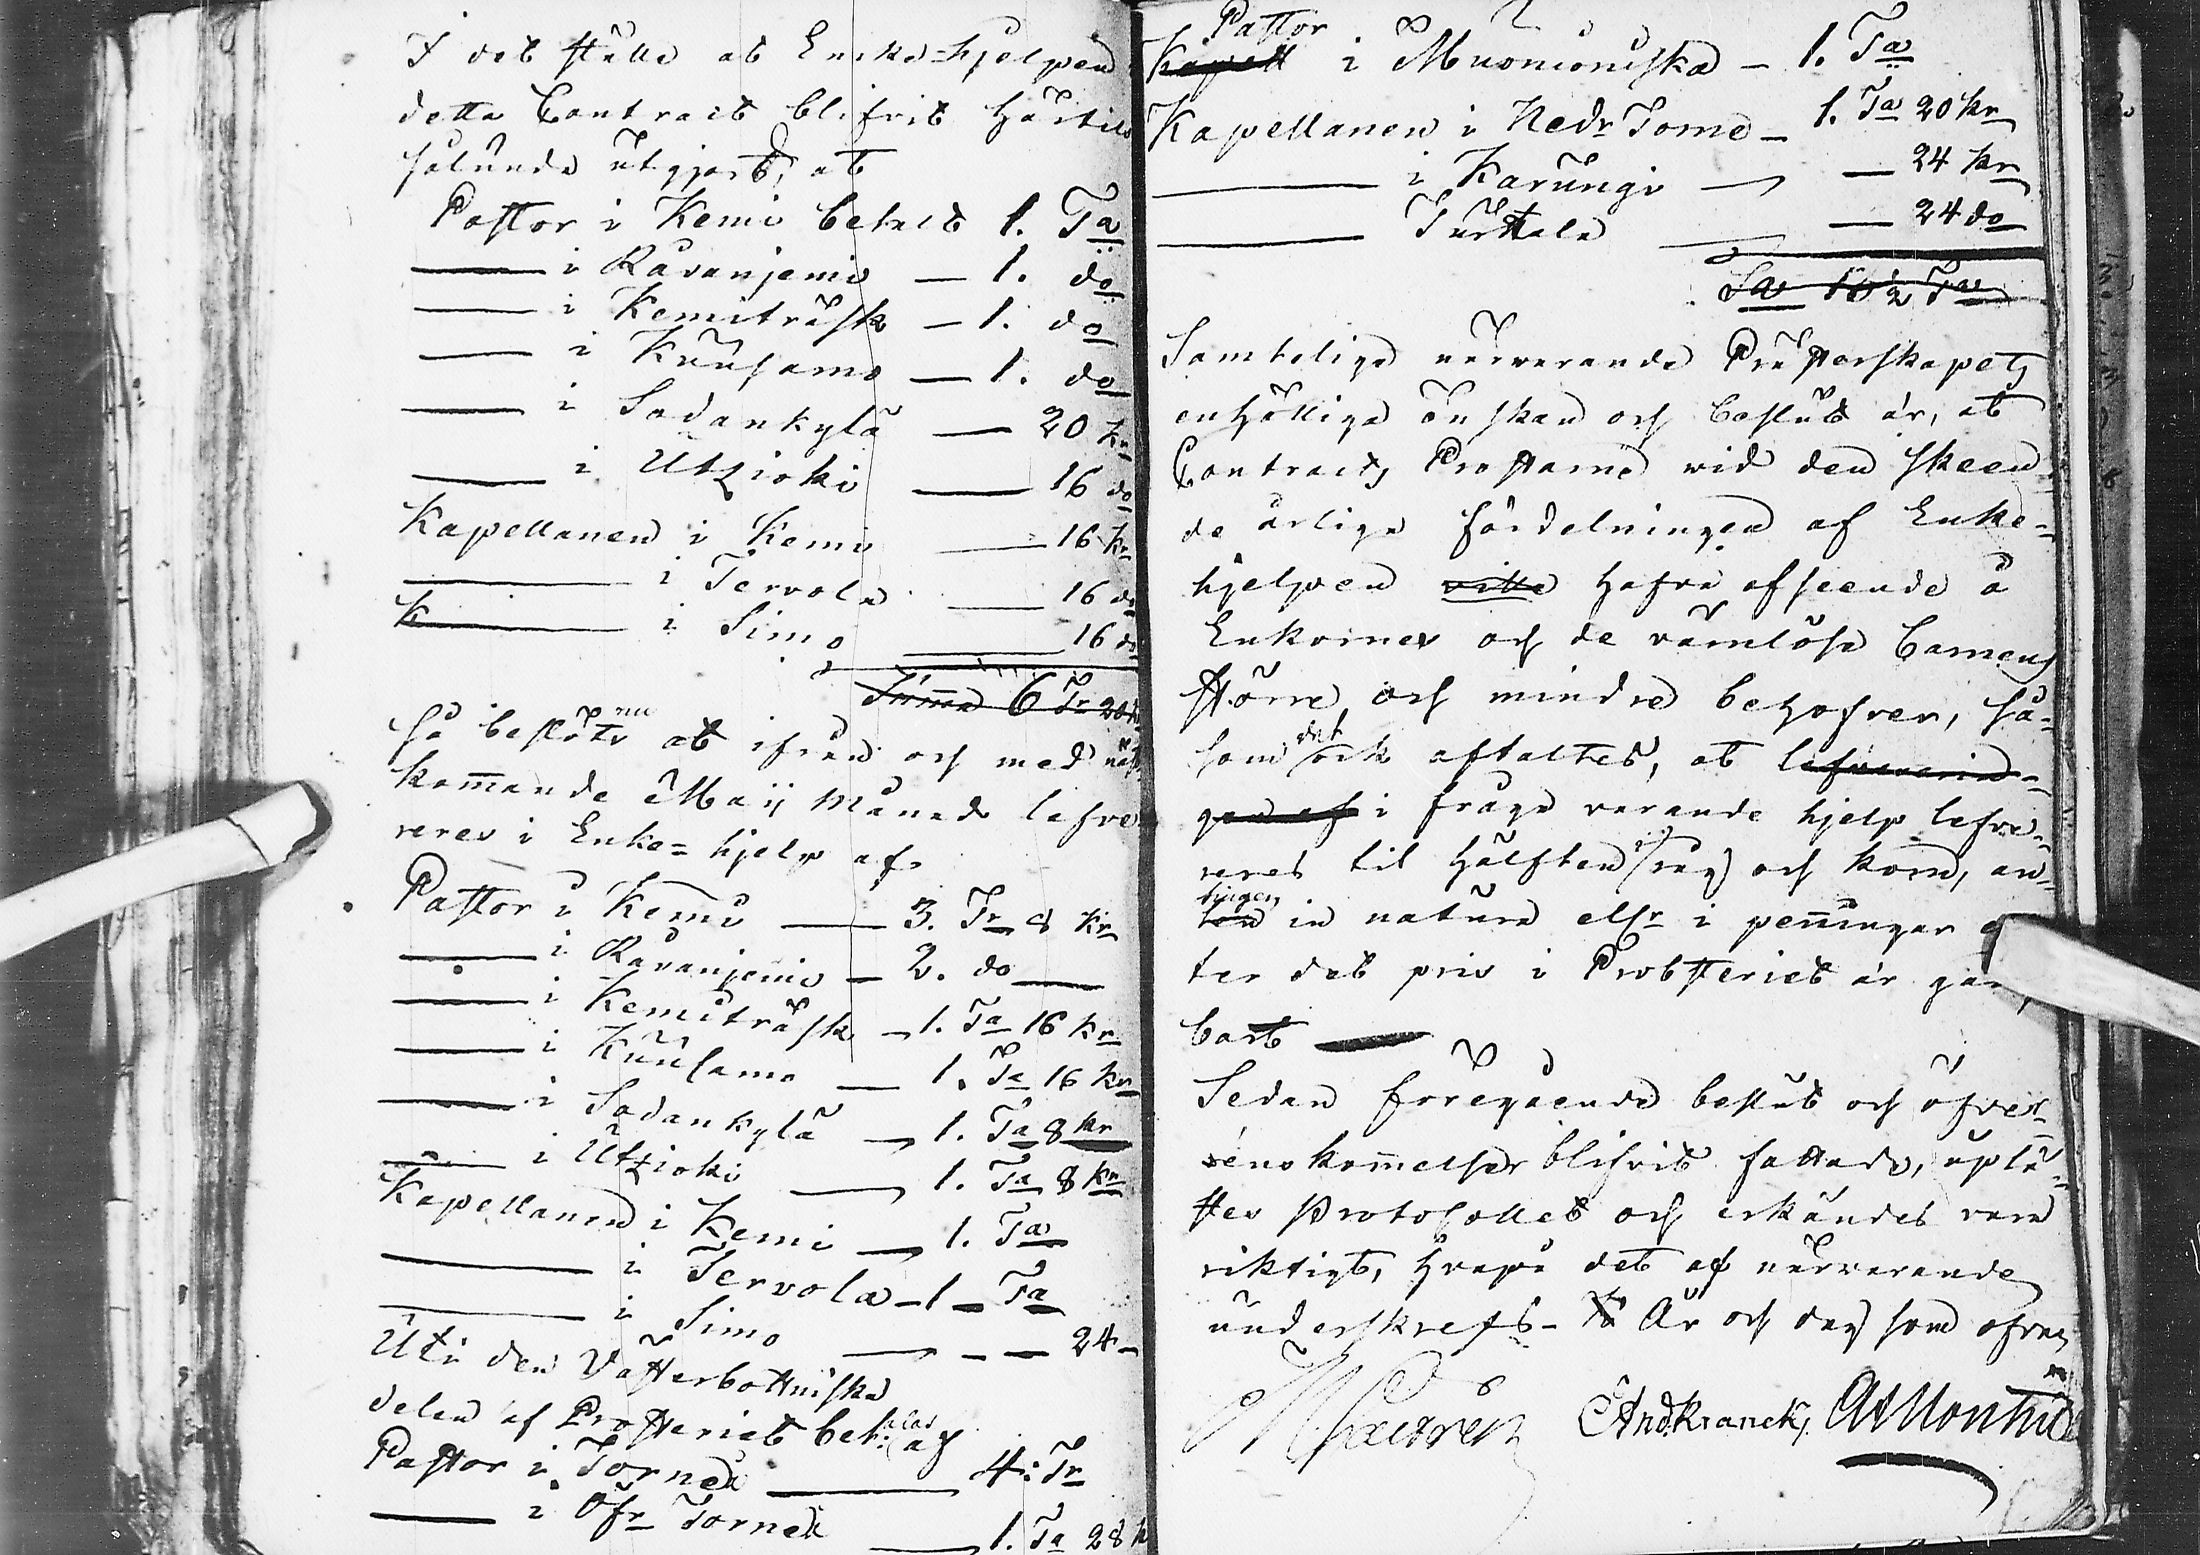 I det ställe at Enke-hjelpen
detta Contract blifvit härtils
sålunda utgjord, at
Pastor i Kemi betalt 1. Ta
—— i Råvanjemi — 1. do
—— i Kemiträsk — 1. do
—— i Kuusamo — 1. do
—— i Sodankylä — 20 kr
—— i Utzioki — 16 do
Kapellanen i Kemi — 16 kr
—— i Tervola — 16 do
K—— i Simo — 16 do
Summa 6 Tr 20 kr
Så beslöts nu at ifrån och med näst
kommande Maij Månad lefve
reres i Enke=hjelp af
Pastor i Kemi — 3. Tr 8 kr
—— i Ravanjemi — 2. do —
—— i Kemiträsk — 1. Ta 16 kr
—— i Kuusamo — 1. Ta 16 kr
—— i Sodankylä — 1. Ta 8 kr
—— i Utzioki — 1. Ta 8 kr
Kapellanen i Kemi — 1. Ta
—— i Tervola — 1 — Ta
—— i Simo — — 24 —
Uti den Västerbottniska
delen af Prosteriet betalas af
Pastor i Torneå — 4: Tr
—— i Öfr Torneå — 1. Ta 28 k
Kapell Pastor i Muonioniska — 1. Ta
Kapellanen i Nedr Torne — 1. Ta 20 kr
—— i Karungi — — 24 kr
—— Turtola — — 24 do
Sa 10 1/2 Ta
Samtelige närvarande Prästerskapets
enhällige önskan och beslut är, at
Contracts Prostarne vid den skeen-
de årliga fördelningen af Enke-
hjelpen ville hafva afseende å
Enkornes och de värnlösa Barnens
större och mindre behofver, så-
som det ock aftaltes, at lefvererin-
gen af i fråga varande hjelp lefve-
reres til hälften i råg och korn, an-
ten tingen in natura ellr i penningar
ter det pris i Probsteriet är gån
bart —
Sedan föregående beslut och öfver-
enskommelser blifvit fattade, uplä-
stes Protokollet och erkändes vara
riktigt, hvarpå det af närvarande
underskrefs — År och dag som ofvan
And. Kranck. A Montin